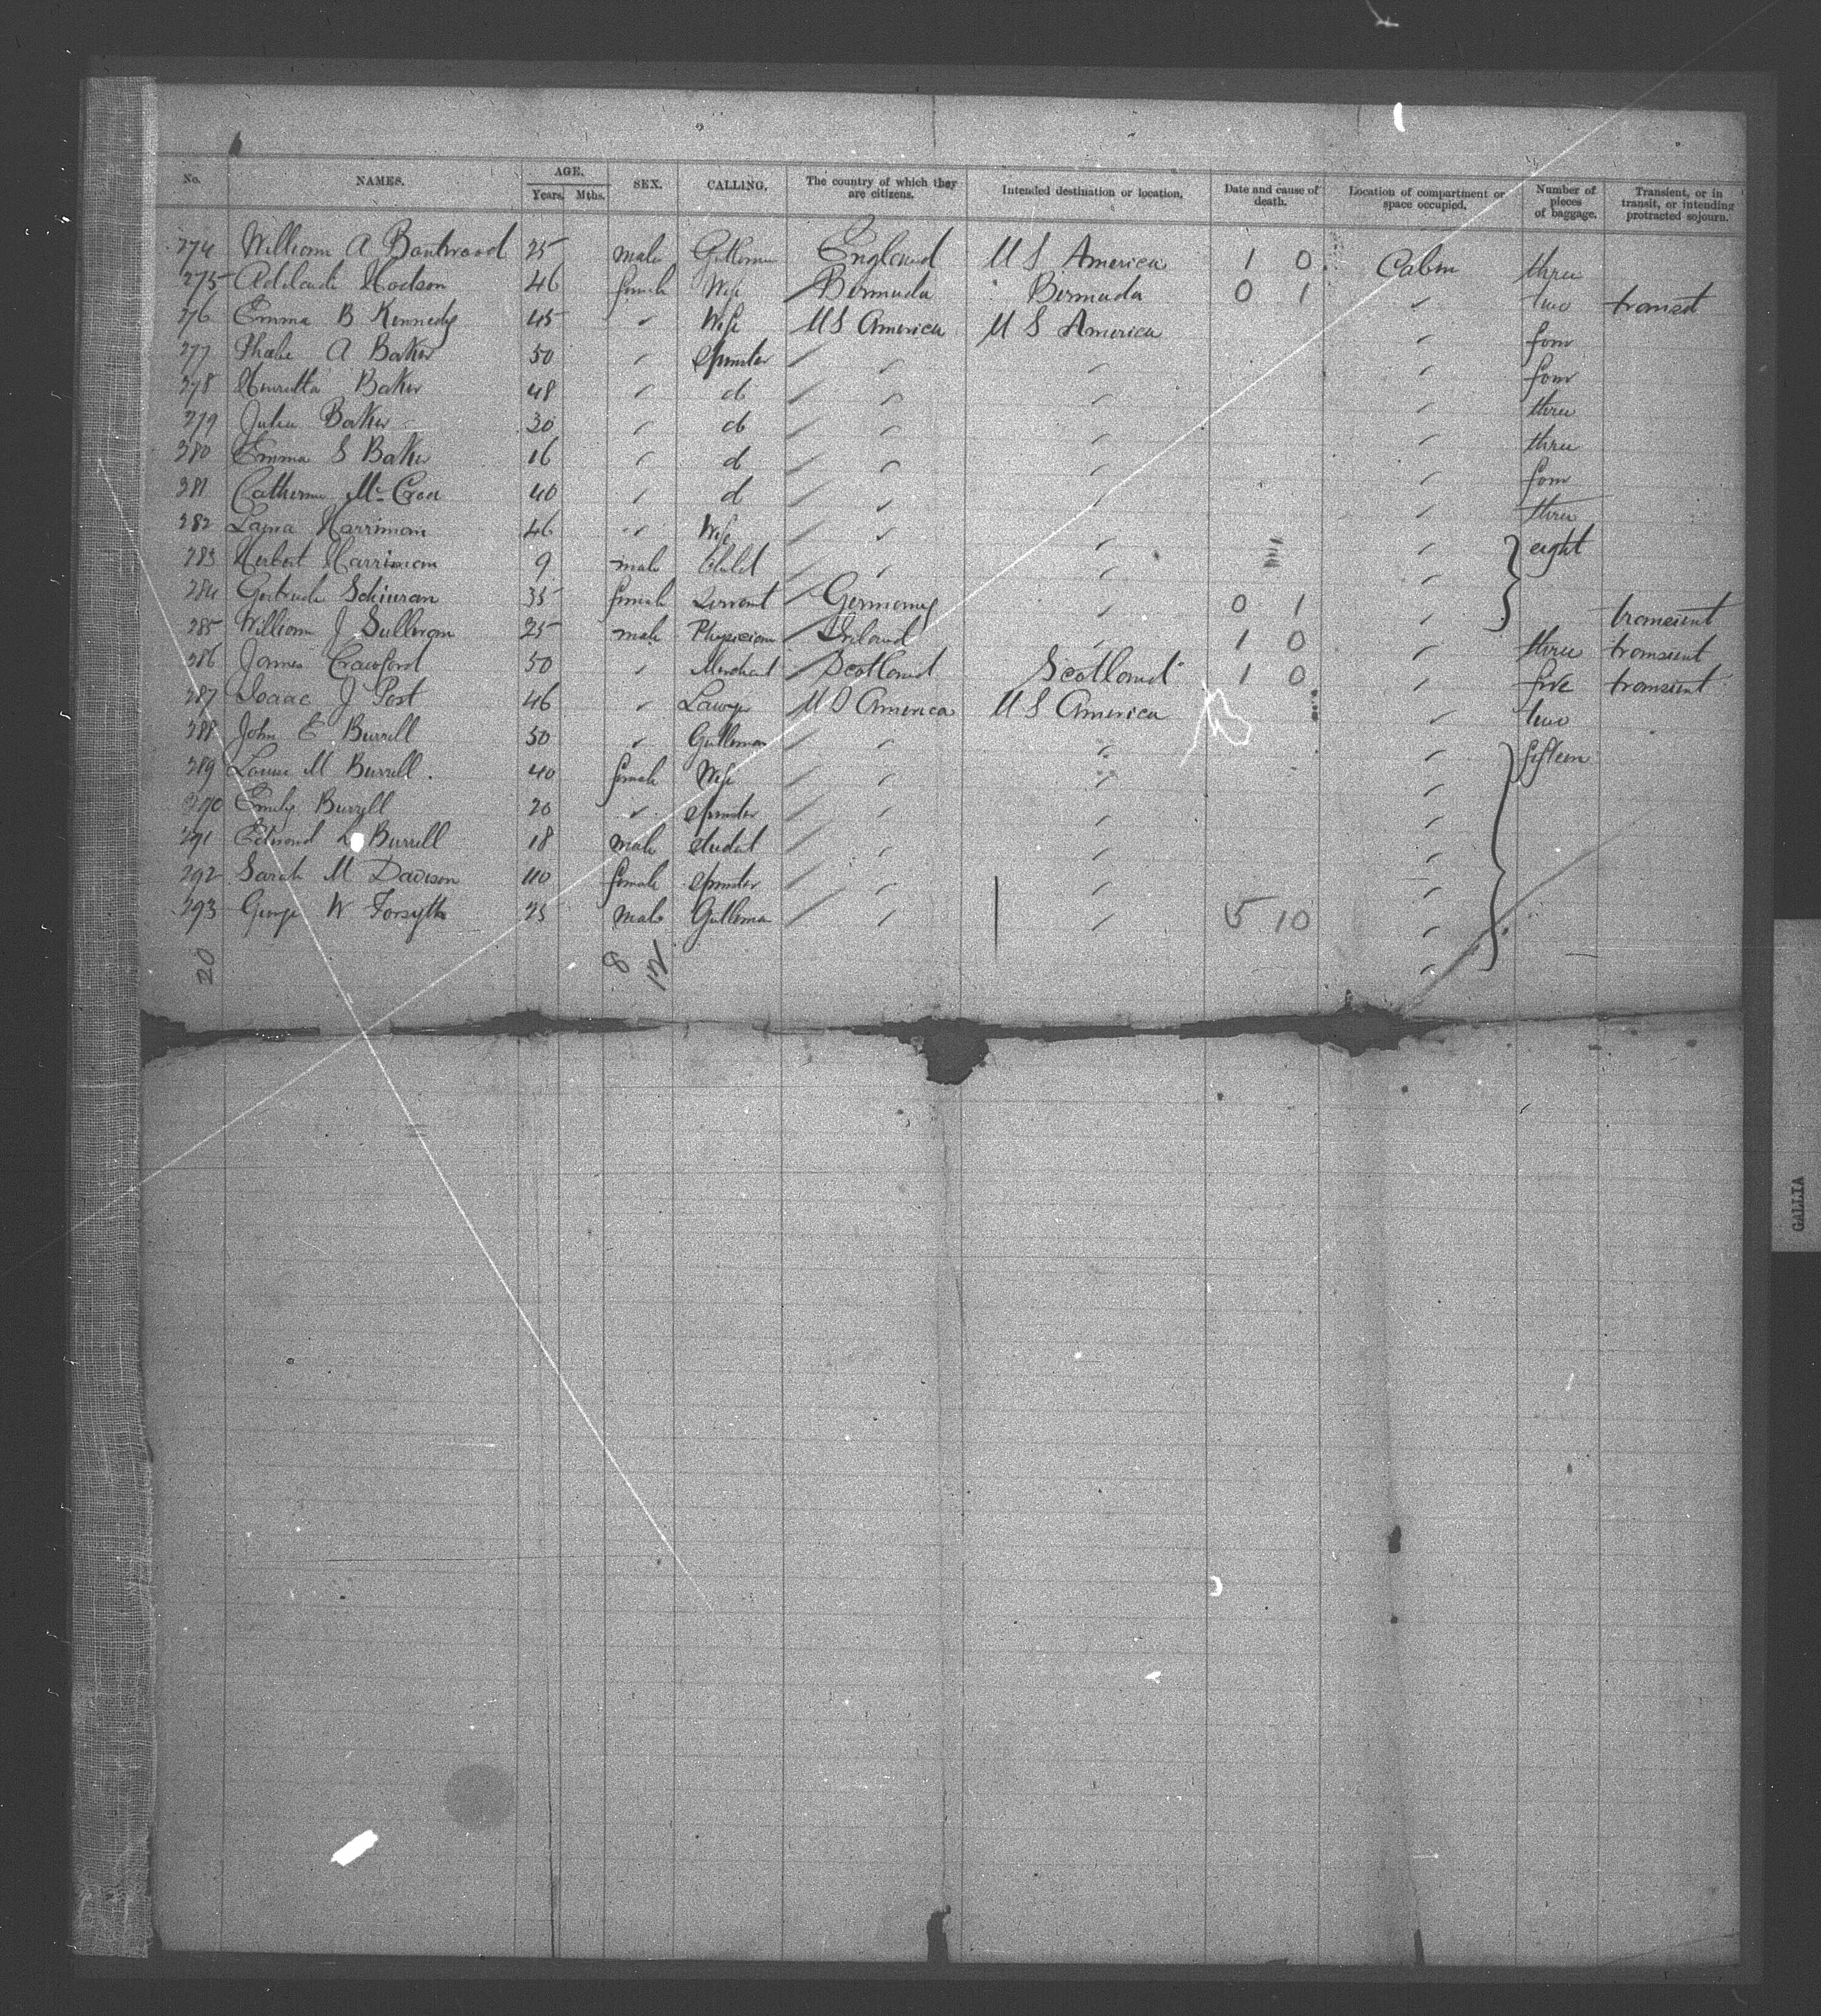 No. NAMES. AGE. Years. Mths. SEX. CALLING. The country of which they are citizens. Intended destination or location. Date and cause of death. Location of compartment or space occupied. Number of pieces of baggage. Transient, or in transit, or intending protracted sojourn.
274 William A 25 male Gentleman England U S America 1 0 Cabin three
275 Adelaide Hodson 46 female Wife Bermuda Bermuda 0 1 " two transit
276 Emma B Kennedy 45 " Wife U S America U S America " four
277 Phœbe A Baker 50 " Spinster " " " four
278 Henrietta Baker 48 " do " " " three
279 Julia Baker 30 " do " " " three
280 Emma S Baker 16 " do " " " four
281 Catherine Mc Crea 40 " do " " " three
282 Harriman 46 " Wife " " " eight
283 Herbert Harriman 9 male Child " " "
284 Gertrude 35 female Servant Germany " 0 1 " transient
285 William J Sullivan 25 male Physician Ireland " 1 0 " three transient
286 James Crawford 50 " Merchant Scotland Scotland 1 0 " five transient
287 Isaac J Post 46 " Lawyer U S America U S America " two
288 John E Burrell 50 " Gentleman " " " fifteen
289 M Burrell. 40 female Wife " " "
290 Emily Burrell 20 " Spinster " " "
291 Edward Burrell 18 male Student " " "
292 Sarah M Davison 40 female Spinster " " "
293 George W Forsyth 25 male Gentleman " " 5 10 "
"
20 8 12
GALLIA